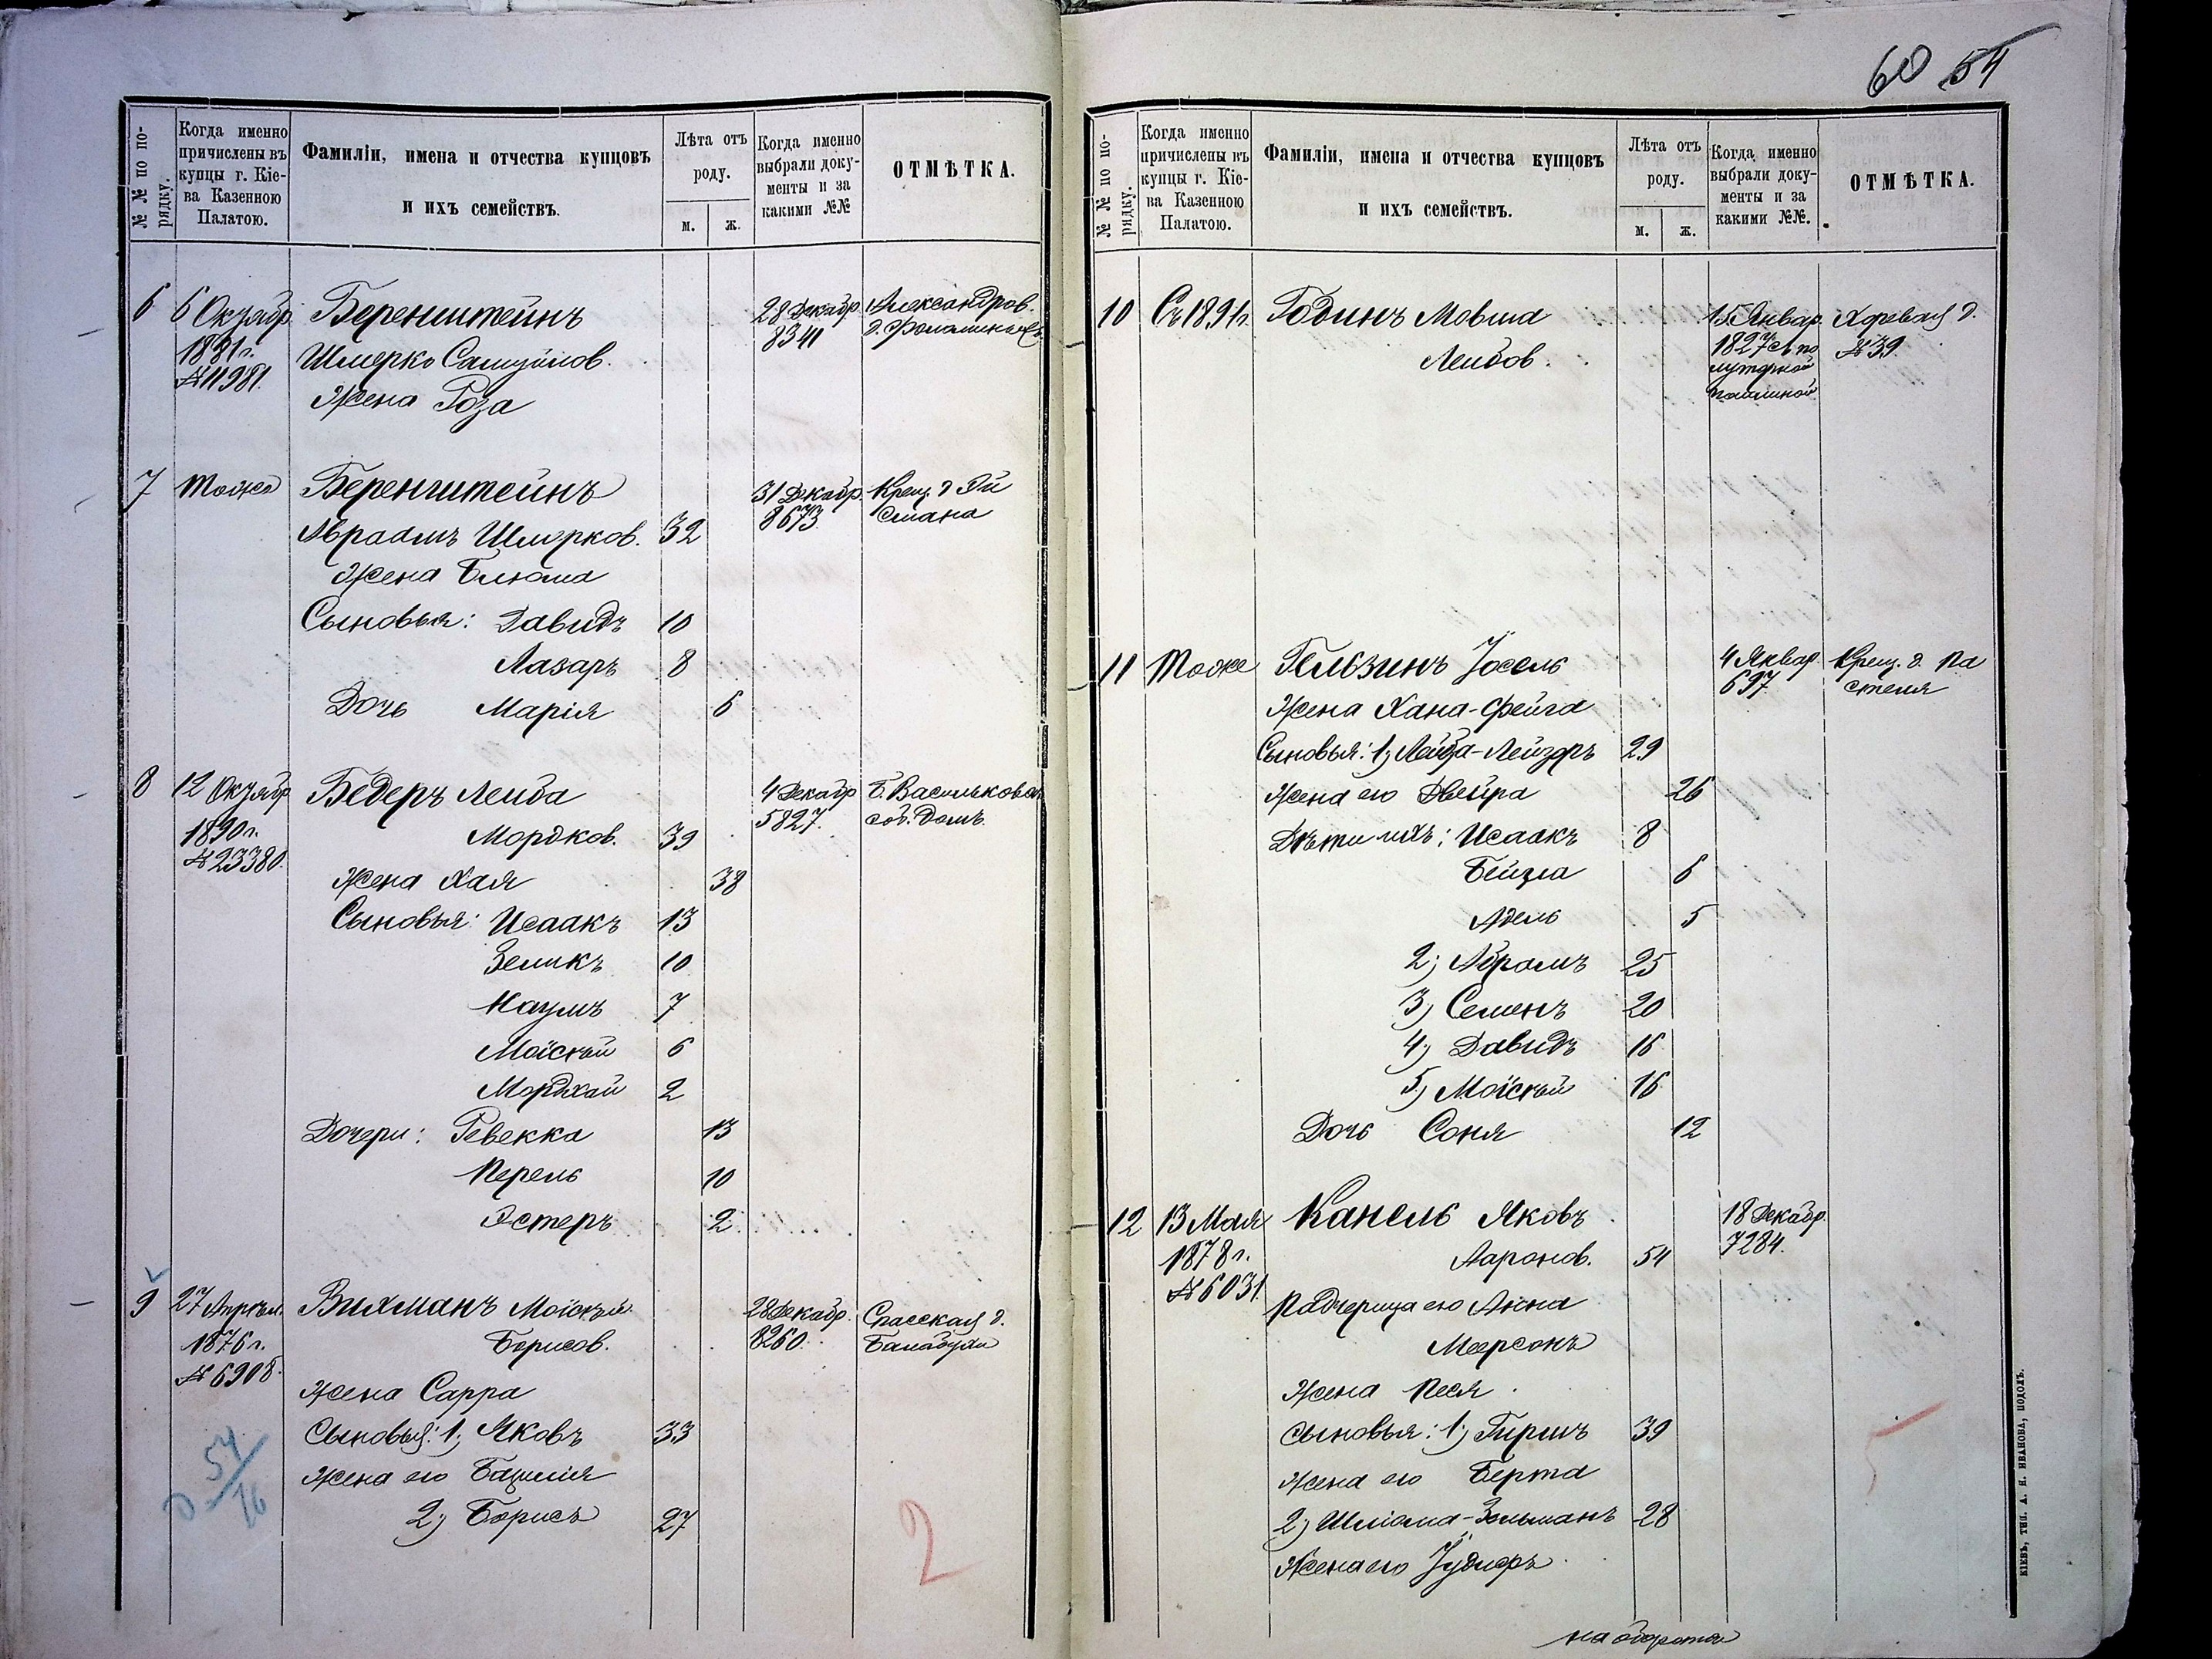 60 54
№№ по порядку.
Когда именно
причислены въ
купцы г. Кіе-
ва Казенною
Палатою.
Фамиліи, имена и отчества купцовъ
и ихъ семействъ.
Лѣта отъ
роду.
м. ж.
Когда именно
выбрали доку-
менты и за
какими №№
ОТМѢТКА.
6 6 Октябр. Беренштейнъ 28 Декабр. Александров.
1881 г. Шмерко Самуйлов. 8341 д.
№ 11981. Жена Роза
7 Тоже Беренштейнъ 31 Декабр. Крещ. д Гй
Авраамъ Шмерков. 32 8673. смана
Жена Блюма
Сыновья: Давидъ 10
Лазарь 8
Дочь Марія 6
8 12 Октябр. Бедеръ Леиба 4 Декабр. Б. Васильковая
1890 г. Мордков. 39 5827. соб. домъ.
№ 23380. Жена Хая 38
Сыновья: Исаакъ 13
Зеликъ 10
Наумъ 7
Моісей 6
Мордхай 2
Дочери: Ревекка 13
Перель 10
Эстеръ 2
9 27 Апрѣл. Вихманъ Моісей 28 Декабр. Спасская д.
1876 г. Борисов. 8260. Балабухи
№ 6908. Жена Сарра
Сыновья: 1, Яковъ 33
Жена его Бацилія
2, Борисъ 27
54/16
2
№№ по порядку.
Когда именно
причислены въ
купцы г. Кіе-
ва Казенною
Палатою.
Фамиліи, имена и отчества купцовъ
и ихъ семействъ.
Лѣта отъ
роду.
м. ж.
Когда именно
выбрали доку-
менты и за
какими №№.
ОТМѢТКА.
10 Съ 1891 г. Годинъ Мовша 15 Январ. Хоревая д.
Леибов. 1827 № 39.
11 Тоже Гельзинъ Іосель 4 Январ. Крещ. д. Па
Жена Хана-Фейга 697 стеля
Сыновья: 1, Лейба-Лейзеръ 29
Жена его Двейра 26
Дѣти ихъ: Исаакъ 8
Бейла 6
Адель 5
2, Абрамъ 25
3, Семенъ 20
4, Давидъ 16
5, Моісей 16
Дочь Соня 12
12 13 Мая Канель Яковъ 18 Декабр.
1878 г. Ааронов. 54 7284.
№ 6031. Падчерица его Анна
Меерсонъ
Жена Песя
Сыновья: 1, Гиршъ 39
Жена его Берта
2, Шліома-Зельманъ 28
Жена его
на оборотѣ
КІЕВЪ, ТИП. А. Н. ИВАНОВА, ПОДОЛЪ.